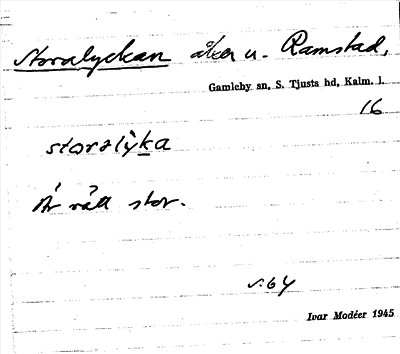 Storalyckan åker u. Ramstad,
Gamleby sn, S. Tjusts hd, Kalm. l.
16
storalỳka
Är rätt stor.
s. 64
Ivar Modéer 1945